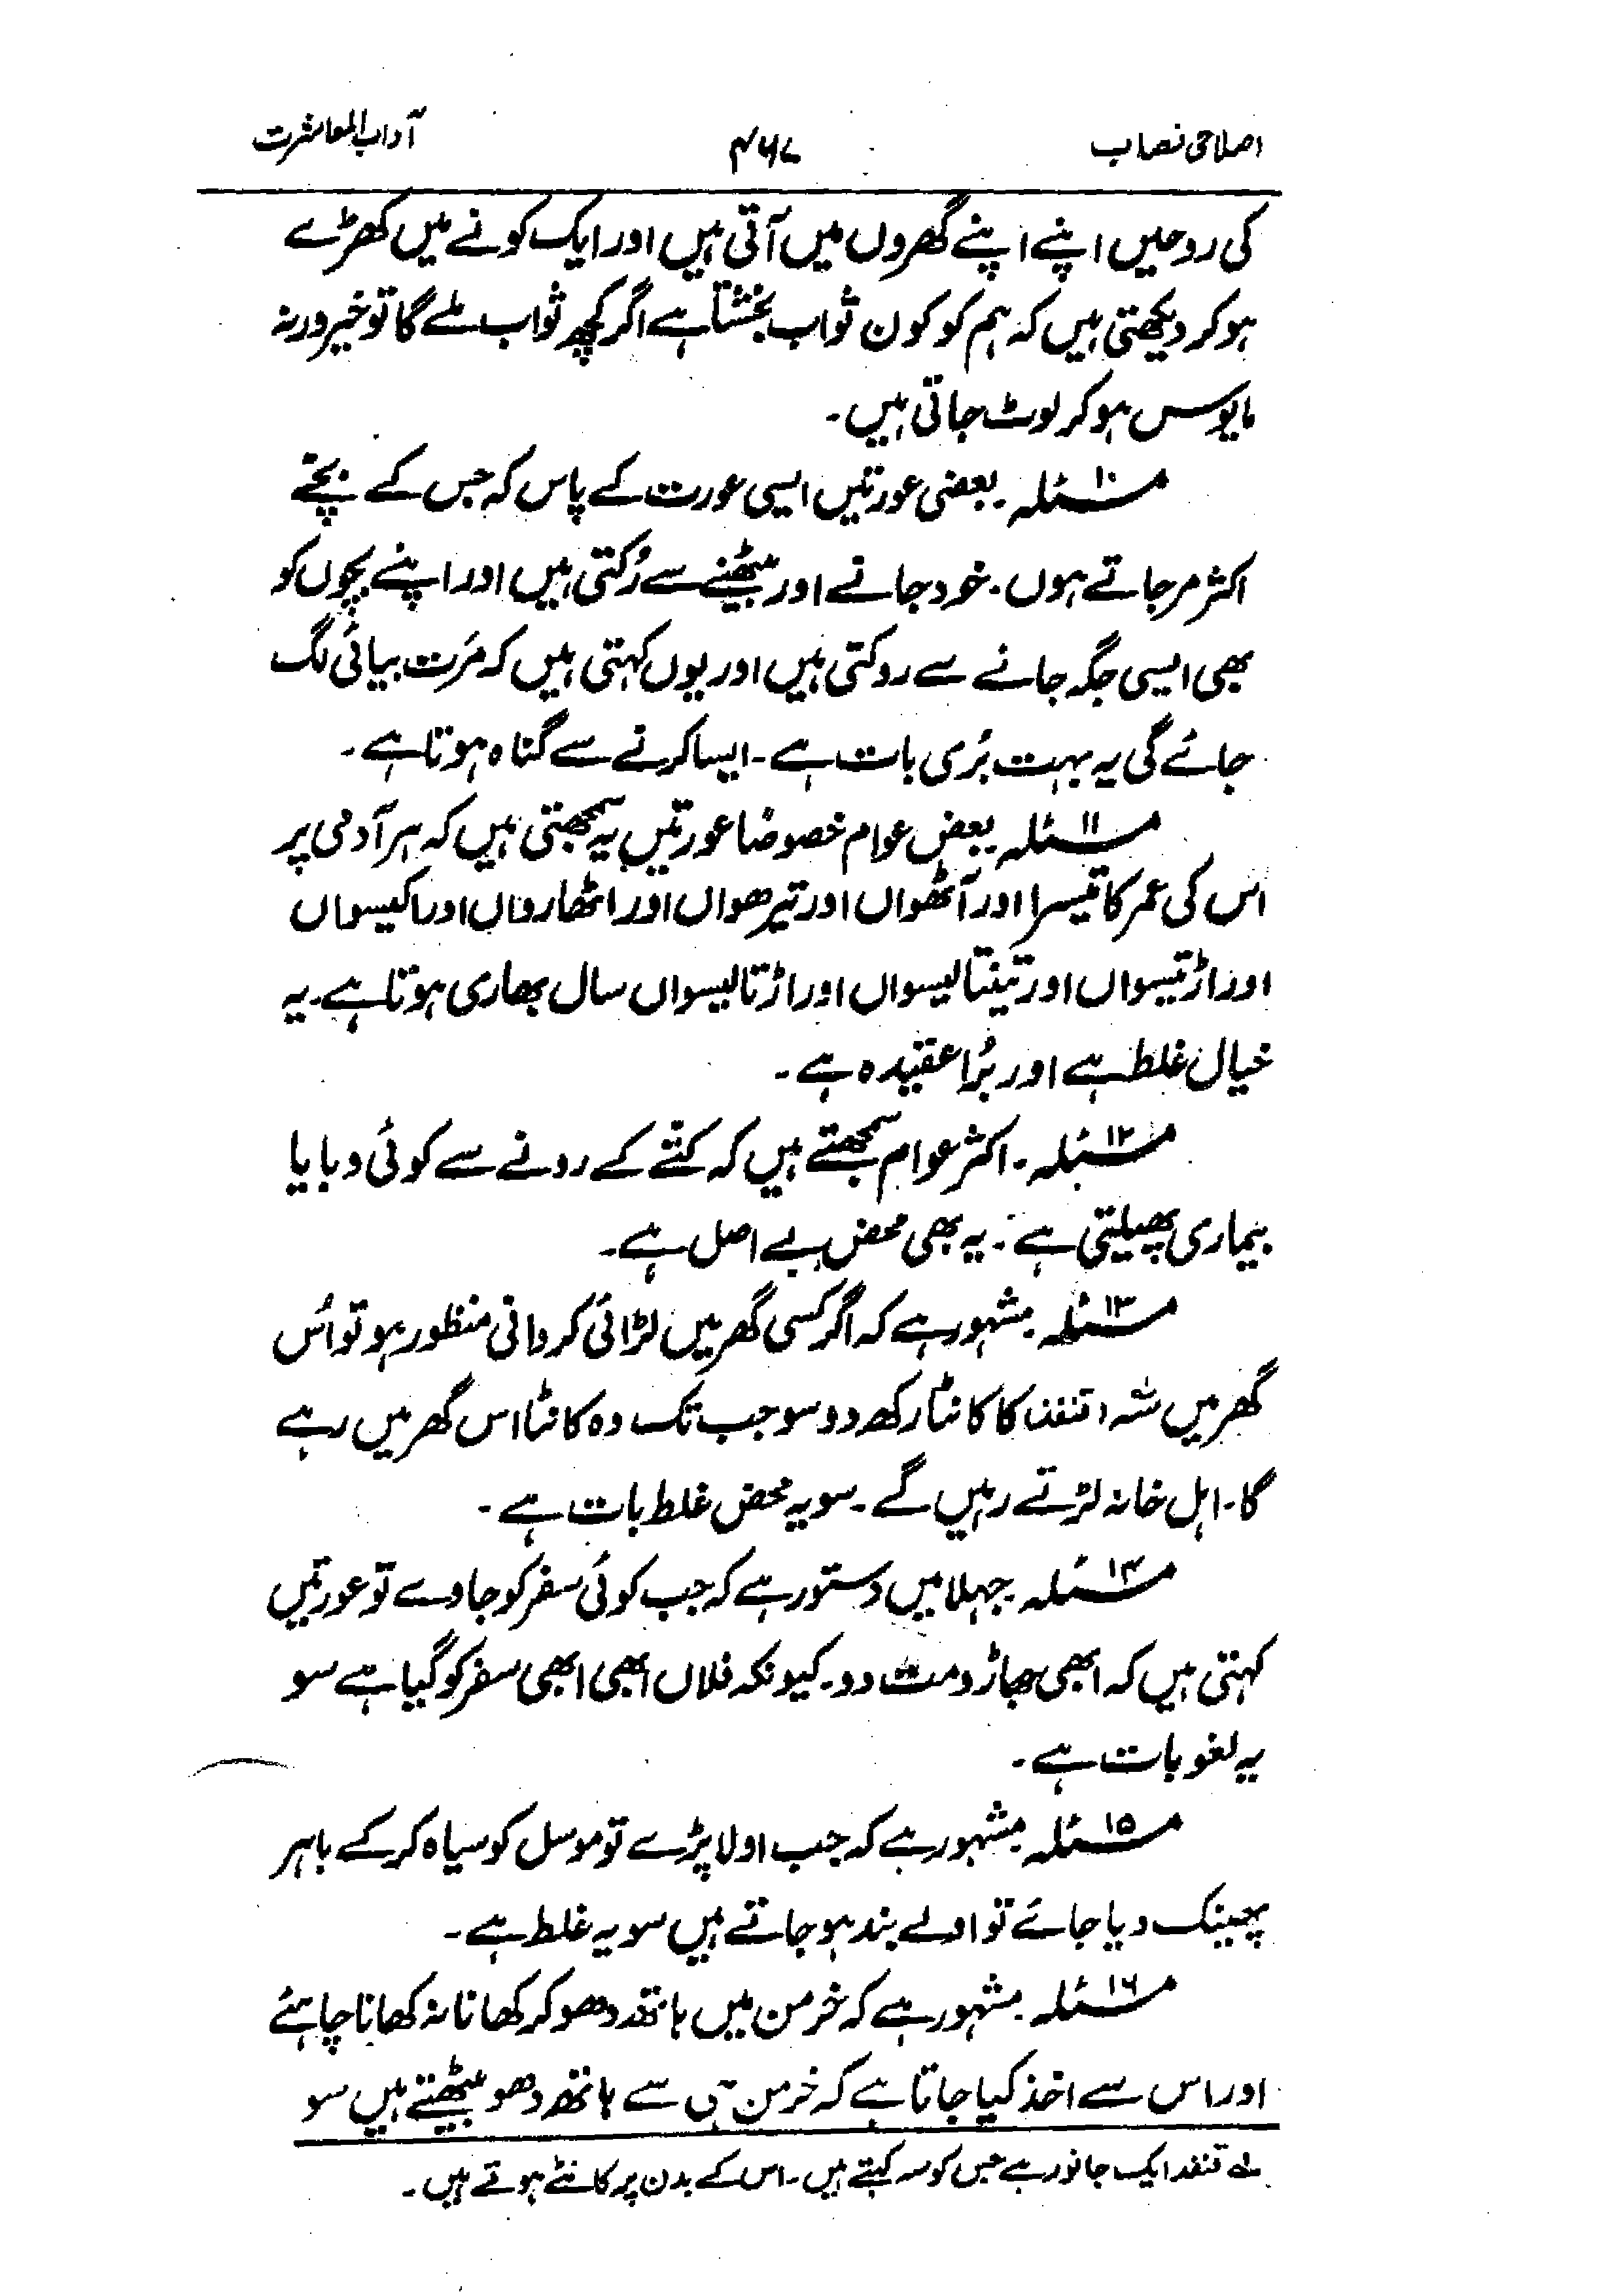 اصلاحی نصاب ۴۶۷ آداب المعاشرت
کی روحیں اپنے اپنے گھروں میں آتی ہیں اور ایک کونے میں کھڑے
ہو کر دیکھتی ہیں کہ ہم کو کون ثواب بخشتا ہے اگر کچھ ثواب ملے گا تو خیر ورنہ
مایوس ہو کر لوٹ جاتی ہیں۔
مسئلہ ۱۰۔ بعضی عورتیں ایسی عورت کے پاس کہ جس کے بچے
اکثر مر جاتے ہوں۔ خود جانے اور بیٹھنے سے رُکتی ہیں اور اپنے بچوں کو
بھی ایسی جگہ جانے سے روکتی ہیں اور یوں کہتی ہیں کہ مَرت بیائی لگ
جائے گی یہ بہت بُری بات ہے۔ ایسا کرنے سے گناہ ہوتا ہے۔
مسئلہ ۱۱۔ بعض عوام خصوصاً عورتیں یہ سمجھتی ہیں کہ ہر آدمی پر
اس کی عمر کا تیسرا اور آٹھواں اور تیرھواں اور اٹھارواں اور اکیسواں
اور اڑتیسواں اور تینتالیسواں اور اڑتالیسواں سال بھاری ہوتا ہے۔ یہ
خیال غلط ہے اور بُرا عقیدہ ہے۔
مسئلہ ۱۲۔ اکثر عوام سمجھتے ہیں کہ کتّے کے رونے سے کوئی وبا یا
بیماری پھیلتی ہے۔ یہ بھی محض بے اصل ہے۔
مسئلہ ۱۳۔ مشہور ہے کہ اگر کسی گھر میں لڑائی کروانی منظور ہو تو اُس
گھر میں سَہ قنفذ کا کانٹا رکھ دو سو جب تک وہ کانٹا اس گھر میں رہے
گا۔ اہل خانہ لڑتے رہیں گے۔ سو یہ محض غلط بات ہے۔
مسئلہ ۱۴۔ جہلا میں دستور ہے کہ جب کوئی سفر کو جاوے تو عورتیں
کہتی ہیں کہ ابھی جھاڑو مت دو۔ کیونکہ فلاں ابھی ابھی سفر کو گیا ہے سو
یہ لغو بات ہے۔
مسئلہ ۱۵۔ مشہور ہے کہ جب اولا پڑے تو موسل کو سیاہ کر کے باہر
پھینک دیا جائے تو اولے بند ہو جاتے ہیں سو یہ غلط ہے۔
مسئلہ ۱۶۔ مشہور ہے کہ خرمن میں ہاتھ دھو کر کھانا نہ کھانا چاہئے
اور اس سے اخذ کیا جاتا ہے کہ خرمن ہی سے ہاتھ دھو بیٹھتے ہیں سو
لے قنفد ایک جانور ہے جس کو سہ کہتے ہیں۔ اس کے بدن پر کانٹے ہوتے ہیں۔